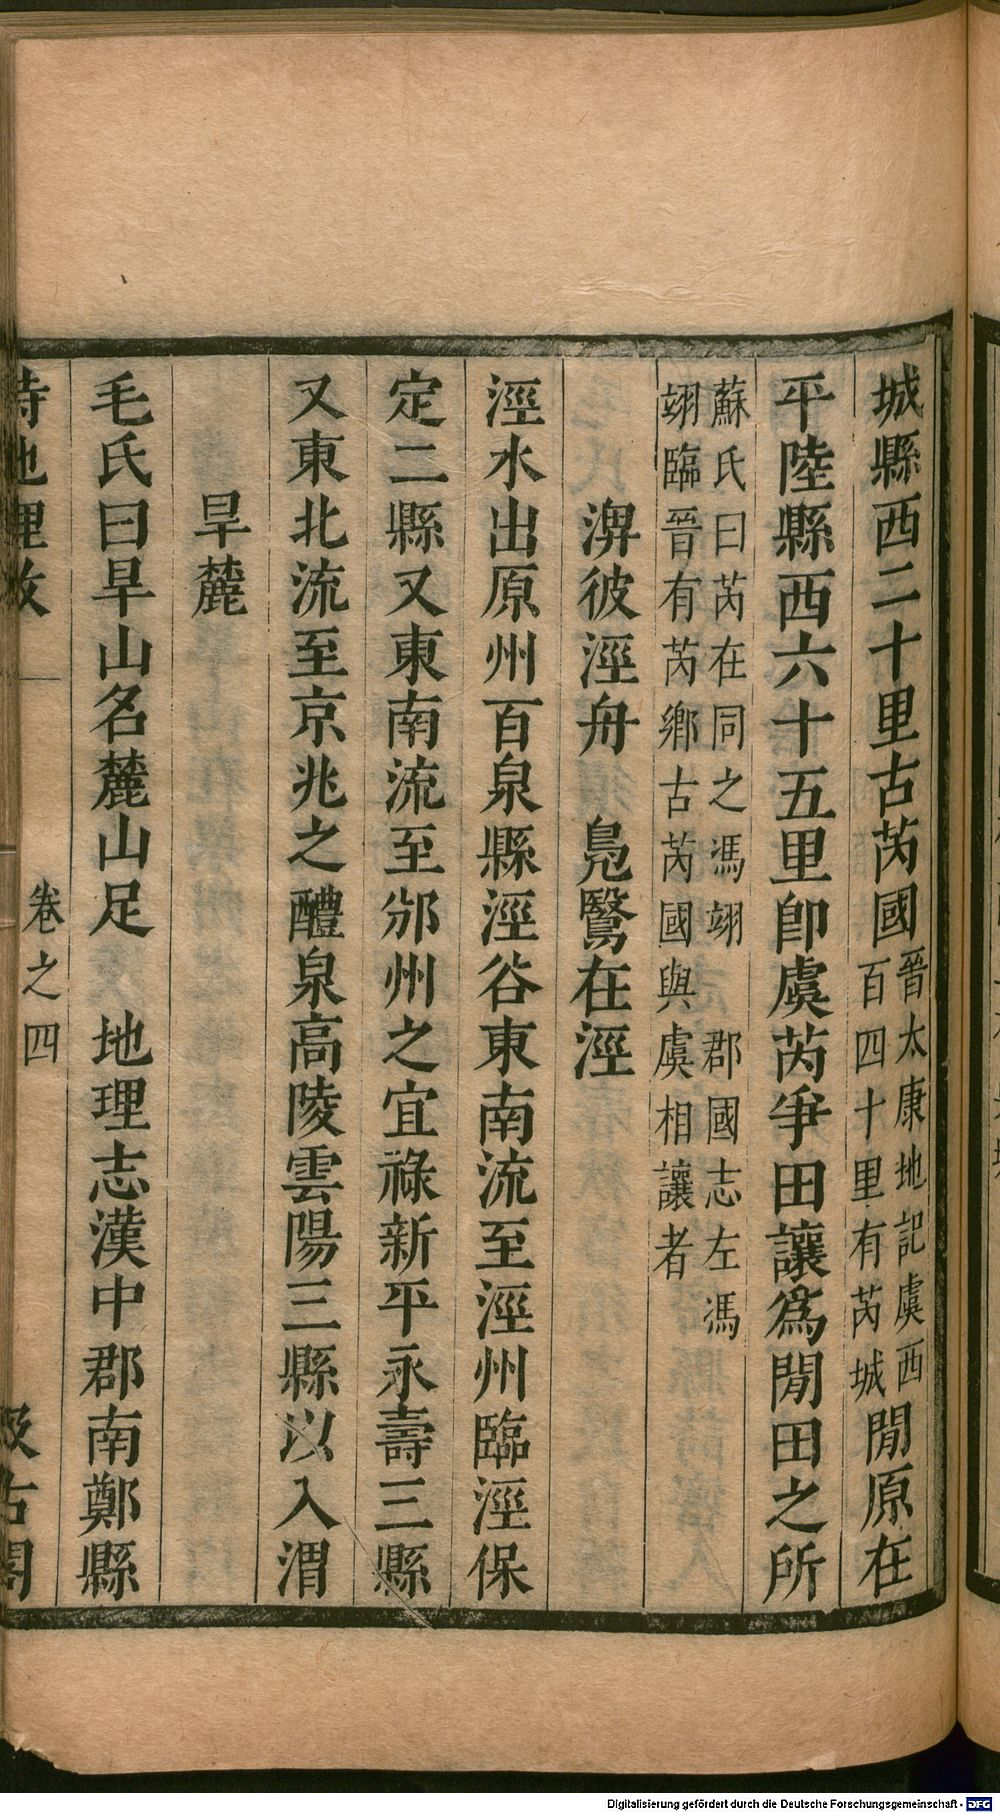 城縣西二十里古芮國晉太康地記虞西百四十里有芮城閒原在
平陸縣西六十五里卽虞芮爭田讓爲閒田之所
蘇氏曰芮在同之馮翊 郡國志左馮
翊臨晉有芮鄉古芮國與虞相讓者
淠彼涇舟 鳧鷖在涇
涇水出原州百泉縣涇谷東南流至涇州臨涇保
定二縣又東南流至邠州之宜祿新平永壽三縣
又東北流至京兆之醴泉高陵雲陽三縣以入渭
旱麓
毛氏曰旱山名麓山足 地理志漢中郡南鄭縣
詩地理攷 卷之四 汲古閣
Digitalisierung gefördert durch die Deutsche Forschungsgemeinschaft - DFG